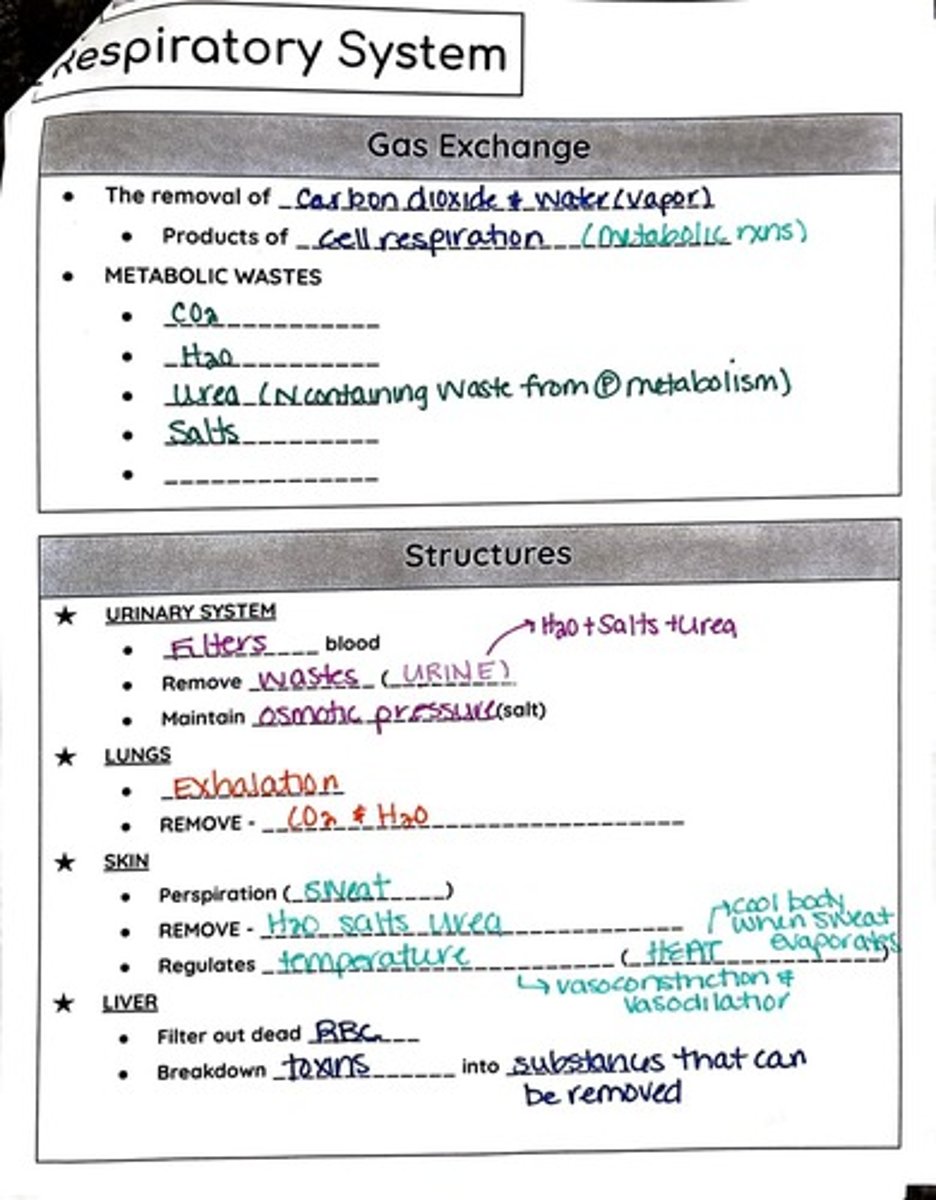 Respiratory System
Gas Exchange
• The removal of Carbon dioxide & water (vapor)
• Products of cell respiration (metabolic rxns)
• METABOLIC WASTES
• CO2
• H2O
• Urea (N containing waste from Ⓟ metabolism)
• Salts
•
Structures
★ URINARY SYSTEM
H2O + Salts + Urea
• Filters blood
• Remove wastes (URINE)
• Maintain osmotic pressure (salt)
★ LUNGS
• Exhalation
• REMOVE - CO2 & H2O
★ SKIN
• Perspiration (sweat)
cool body
when sweat
evaporates
• REMOVE - H2O salts urea
• Regulates temperature (HEAT)
vasoconstriction &
vasodilation
★ LIVER
• Filter out dead RBC
• Breakdown toxins into substances that can
be removed